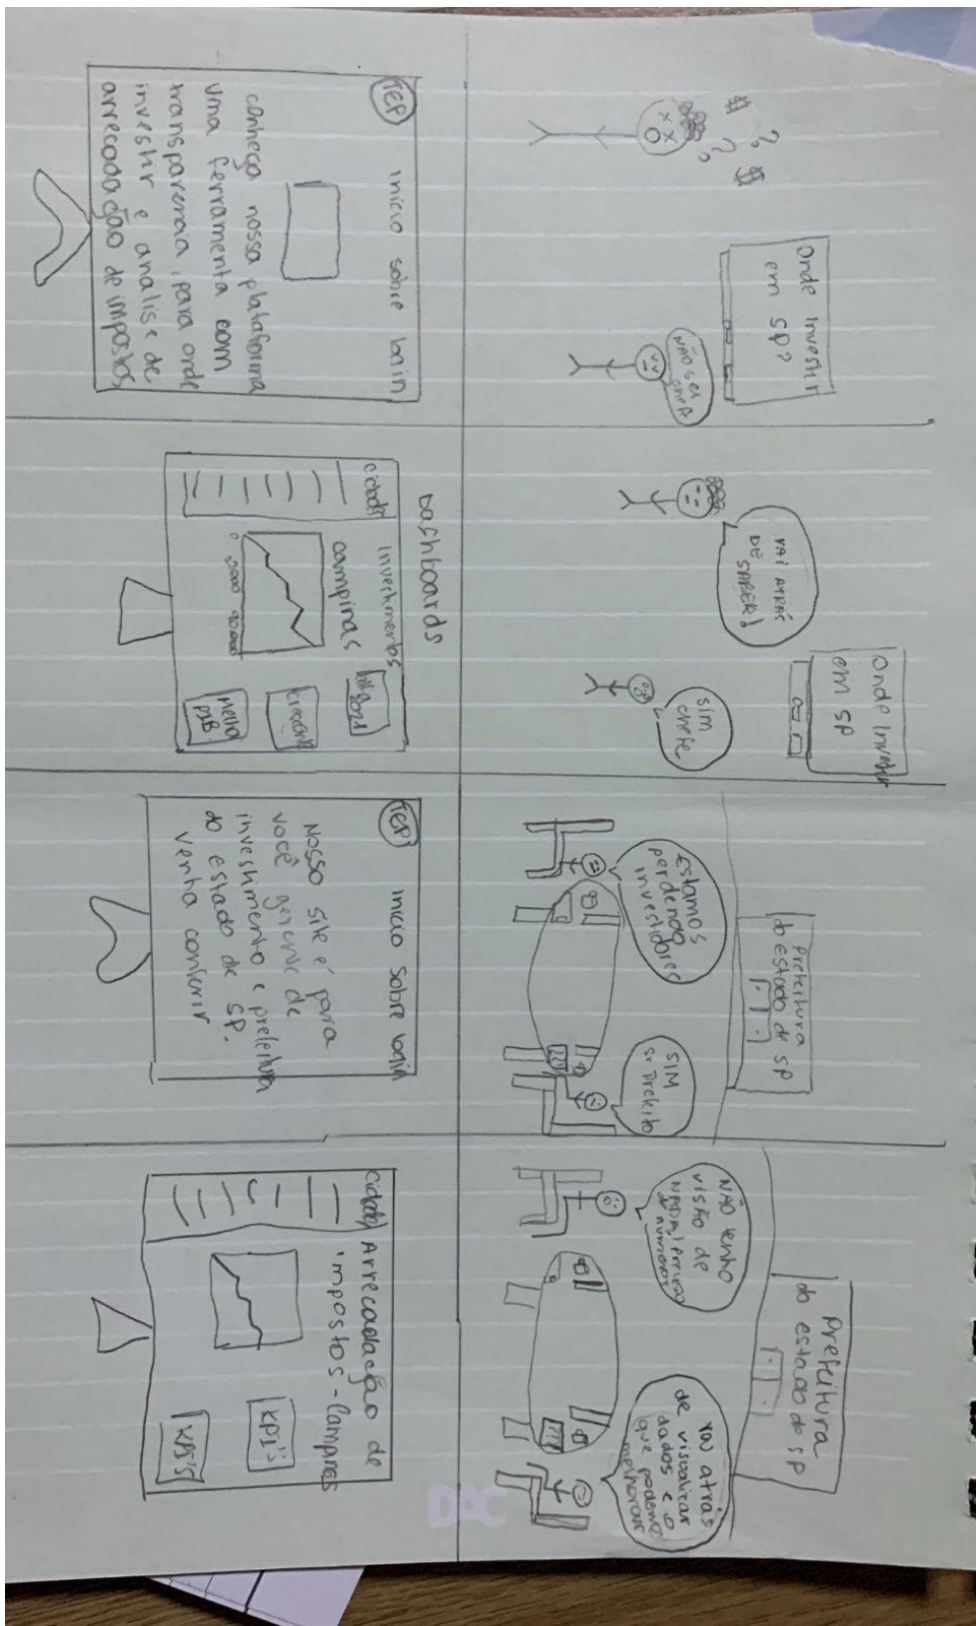 $ ? ? $
?
Onde investir
em SP?
NÃO SEI
CHEFE
VAI ATRÁS
DE
SABER!
Onde investir
em SP
sim
chefe
Prefeitura
do estado de SP
Estamos
perdendo
investidores
SIM
sr Prefeito
Prefeitura
do estado de SP
NÃO tenho
visão de
NADA
numeros
vou atrás
de visualizar
dados e o
que podemos
melhorar
TEP
inicio sobre login
conheça nossa plataforma
uma ferramenta com
transparencia, para onde
investir e analise de
arrecadação de impostos
Dashboards
cidades
investimentos
campinas
2021
crescente
Melhor
PIB
TEP
inicio sobre login
Nosso site é para
você gerente de
investimento e prefeitura
do estado de SP.
venha conferir
cidades
Arrecadação de
impostos - Campinas
KPI'S
KPI'S
DAC